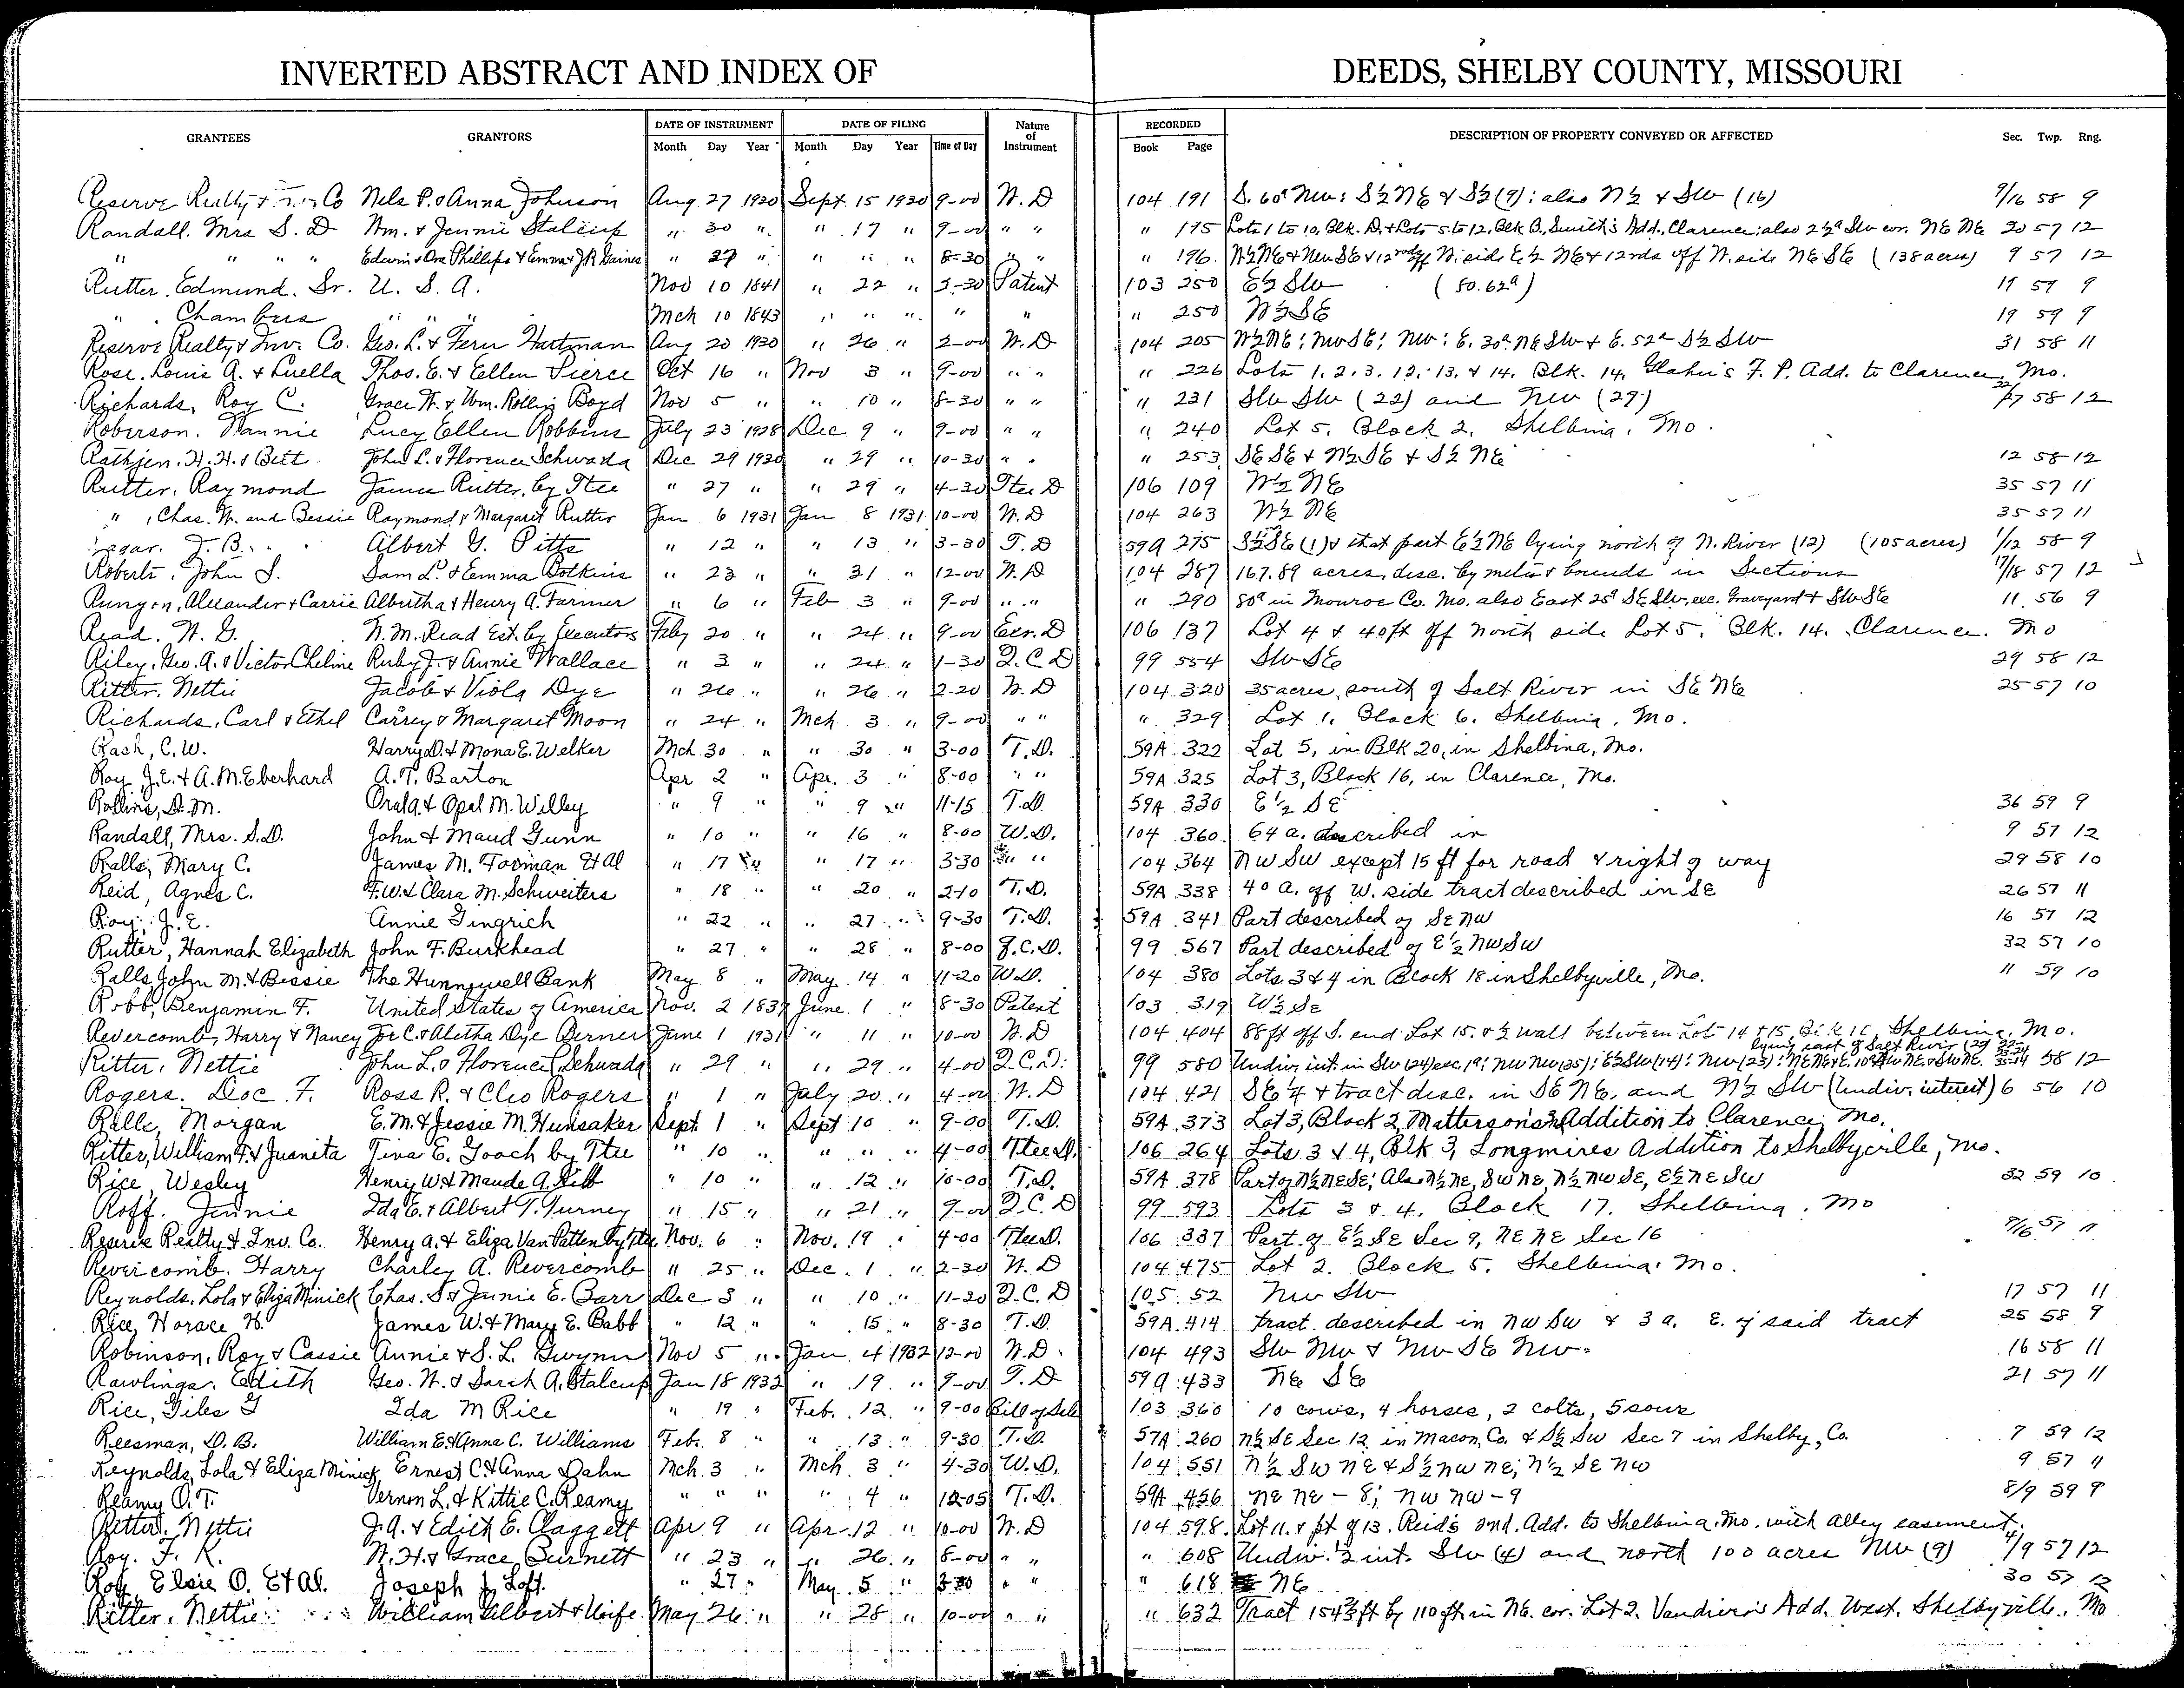 INVERTED ABSTRACT AND INDEX OF DEEDS, SHELBY COUNTY, MISSOURI
GRANTEES GRANTORS DATE OF INSTRUMENT DATE OF FILING Nature of Instrument RECORDED DESCRIPTION OF PROPERTY CONVEYED OR AFFECTED Sec. Twp. Rng.
Month Day Year Month Day Year Time of Day Book Page
Reserve Realty & Co Nels P. & Anna Johnson Aug 27 1930 Sept. 15 1930 9-00 W. D 104 191 S. 60a NW: S½ NE & S½ (9): also N½ & SW (16) 9/16 58 9
Randall. Mrs S. D Wm. & Jennie Stalcup " 30 " " 17 " 9-00 " " " 195 Lots 1 to 10, Blk. D. & Lots 5 to 12, Blk B, Smith's Add., Clarence; also 2½a SW cor. NE NE 20 57 12
" " " " Edwin & Ora Phillips & Emma & J.R. Gaines " 27 " " " " 8-30 " " " 196 W½ NE & NW SE & 12 rods off W. side E½ NE & 12 rds off W. side NE SE (138 acres) 9 57 12
Rutter. Edmund. Sr. U. S. A. Nov 10 1841 " 22 " 3-30 Patent 103 250 E½ SW (80.62a) 19 59 9
" . Chambers " " " Mch 10 1843 " " " " " " 250 W½ SE 19 59 9
Reserve Realty & Inv. Co. Geo. L. & Fern Hartman Aug 20 1930 " 26 " 2-00 W. D 104 205 W½ NE; NW SE; NW; E. 30a NE SW & E. 52a S½ SW 31 58 11
Rose. Louis A. & Luella Thos. E. & Ellen Pierce Oct 16 " Nov 3 " 9-00 " " " 226 Lots 1. 2. 3. 12. 13. & 14. Blk. 14. F. P. Add. to Clarence, Mo.
Richards, Roy C. Grace W. & Wm. Rollin Boyd Nov 5 " " 10 " 8-30 " " " 231 SW SW (22) and NW (27) 22/27 58 12
Roberson. Nannie Lucy Ellen Robbins July 23 1928 Dec 9 " 9-00 " " " 240 Lot 5. Block 2. Shelbina. Mo.
Rathjen. H. H. & Bett John L. & Florence Schwada Dec 29 1930 " 29 " 10-30 " " " 253 SE SE & N½ SE & S½ NE 12 58 12
Rutter. Raymond James Rutter, by Ttee " 27 " " 29 " 4-30 Ttee D 106 109 W½ NE 35 57 11
" , Chas. W. and Bessie Raymond & Margaret Rutter Jan 6 1931 Jan 8 1931 10-00 W. D 104 263 W½ NE 35 57 11
J. B. Albert G. Pitts " 12 " " 13 " 3-30 T. D 59A 275 S½ SE (1) & that part E½ NE lying north of N. River (12) (105 acres) 1/12 58 9
Roberts. John S. Sam L. & Emma Botkins " 23 " " 31 " 12-00 W. D 104 287 167.89 acres, desc. by metes & bounds in Sections 17/18 57 12
Runyon, Alexander & Carrie Albertha & Henry A. Farmer " 6 " Feb 3 " 9-00 " " " 290 80a in Monroe Co. Mo. also East 25a SE SW, exc. Graveyard & SW SE 11 56 9
Read. W. G. W. M. Read Est. by Executors Feby 20 " " 24 " 9-00 Exr. D 106 137 Lot 4 & 40 ft off north side Lot 5. Blk. 14. Clarence. Mo
Riley, Geo. A. & Victor Cheline Ruby J. & Annie Wallace " 3 " " 24 " 1-30 Q. C. D 99 554 SW SE 29 58 12
Ritter. Nettie Jacob & Viola Dye " 26 " " 26 " 2-20 W. D 104 320 35 acres, south of Salt River in SE NE 25 57 10
Richards, Carl & Ethel Carrey & Margaret Moon " 24 " Mch 3 " 9-00 " " " 329 Lot 1. Block 6. Shelbina. Mo.
Rash, C. W. Harry D. & Mona E. Welker Mch. 30 " " 30 " 3-00 T. D. 59A 322 Lot 5, in Blk 20, in Shelbina, Mo.
Roy J. E. & A. M. Eberhard A. T. Barton Apr. 2 " Apr. 3 " 8-00 " " 59A 325 Lot 3, Block 16, in Clarence, Mo.
Rollins, D. M. Oral A. & Opal M. Willey " 9 " " 9 " 11-15 T. D. 59A 330 E½ SE 36 59 9
Randall, Mrs. S. D. John & Maud Gunn " 10 " " 16 " 8-00 W. D. 104 360 64 a. described in 9 57 12
Ralls, Mary C. James M. Forman Et Al " 17 " " 17 " 3-30 " " 104 364 NW SW except 15 ft for road & right of way 29 58 10
Reid, Agnes C. F. W. & Clara M. Schweiters " 18 " " 20 " 2-10 T. D. 59A 338 40 a. off W. side tract described in SE 26 57 11
Roy, J. E. Annie Gingrich " 22 " " 27 " 9-30 T. D. 59A 341 Part described of SE NW 16 57 12
Rutter, Hannah Elizabeth John F. Burkhead " 27 " " 28 " 8-00 Q. C. D. 99 567 Part described of E½ NW SW 32 57 10
Ralls John M. & Bessie The Hunnewell Bank May 8 " May 14 " 11-20 W D. 104 380 Lots 3 & 4 in Block 18 in Shelbyville, Mo. 11 59 10
Robb, Benjamin F. United States of America Nov. 2 1837 June 1 " 8-30 Patent 103 319 W½ SE
Revercomb, Harry & Nancy Joe C. & Aletha Dye Berner June 1 1931 " 11 " 10-00 W. D 104 404 88 ft off S. end Lot 15. & ½ wall between Lot 14 & 15, Blk 10, Shelbina, Mo.
Ritter. Nettie John L. & Florence Schwada " 29 " " 29 " 4-00 Q. C. D. 99 580 Undiv. int. in SW (24) lying east of Salt River 58 12
Rogers. Doc. F. Ross R. & Cleo Rogers " 1 " July 20 " 4-00 W. D 104 421 SE ¼ & tract desc. in SE NE, and N½ SW (undiv. interest) 6 56 10
Ralls, Morgan E. M. & Jessie M. Hunsaker Sept. 1 " Sept 10 " 9-00 T. D. 59A 373 Lot 3, Block 2, Matterson's Addition to Clarence, Mo.
Ritter, William F. & Juanita Tina E. Gooch by Ttee " 10 " " " " 4-00 Ttee D. 106 264 Lots 3 & 4, Blk 3, Longmires Addition to Shelbyville, Mo.
Rice, Wesley Henry W. & Maude A. " 10 " " 12 " 10-00 T. D. 59A 378 Part of N½ NE SE; Also N½ NE, SW NE, N½ NW SE, E½ NE SW 32 59 10
Roff. Jennie Ida E. & Albert T. Turney " 15 " " 21 " 9-00 Q. C. D 99 593 Lots 3 & 4. Block 17. Shelbina. Mo
Reserve Realty & Inv. Co. Henry A. & Eliza Van Patten by Ttee Nov. 6 " Nov. 19 " 4-00 Ttee D. 106 337 Part of E½ SE Sec 9, NE NE Sec 16 9/16 57 11
Revercomb. Harry Charley A. Revercomb " 25 " Dec. 1 " 2-30 W. D 104 475 Lot 2. Block 5. Shelbina. Mo.
Reynolds, Lola & Eliza Minick Chas. S. & Junie E. Barr Dec 3 " " 10 " 11-30 Q. C. D 105 52 NW SW 17 57 11
Rice, Horace H. James W. & Mary E. Babb " 12 " " 15 " 8-30 T. D. 59A 414 tract described in NW SW & 3 a. E. of said tract 25 58 9
Robinson, Roy & Cassie Annie & S. L. Gwynn Nov 5 " Jan 4 1932 12-00 W. D. 104 493 SW NW & NW SE NW. 16 58 11
Rawlings. Edith Geo. W. & Sarah A. Stalcup Jan 18 1932 " 19 " 9-00 T. D 59A 433 NE SE 21 57 11
Rice, Giles G Ida M Rice " 19 " Feb. 12 " 9-00 Bill of Sale 103 360 10 cows, 4 horses, 2 colts, 5 sows
Reesman, D. B. William E. & Anna C. Williams Feb. 8 " " 13 " 9-30 T. D. 57A 260 N½ SE Sec 12 in Macon, Co. & S½ SW Sec 7 in Shelby, Co. 7 59 12
Reynolds, Lola & Eliza Minick Ernest C. & Anna Dahn Mch. 3 " Mch. 3 " 4-30 W. D. 104 551 N½ SW NE & S½ NW NE; N½ SE NW 9 57 11
Reamy O. T. Vernon L. & Kittie C. Reamy " " " " 4 " 12-05 T. D. 59A 456 NE NE - 8; NW NW - 9 8/9 59 9
Ritter. Nettie J. A. & Edith E. Claggett Apr 9 " Apr 12 " 10-00 W. D 104 598 Lot 11. & pt of 13. Reid's 2nd. Add. to Shelbina. Mo. with alley easement.
Roy. F. K. W. H. & Grace Burnett " 23 " " 26 " 8-00 " " " 608 Undiv. ½ int. SW (4) and north 100 acres NW (9) 4/9 57 12
Roy Elsie O. Et Al. Joseph J. Loft. " 27 " May 5 " 3-30 " " " 618 NE 30 57 12
Ritter. Nettie William Gilbert & Wife May 26 " " 28 " 10-00 " " " 632 Tract 154⅔ ft by 110 ft in NE. cor. Lot 2. Vandiver's Add. West. Shelbyville. Mo